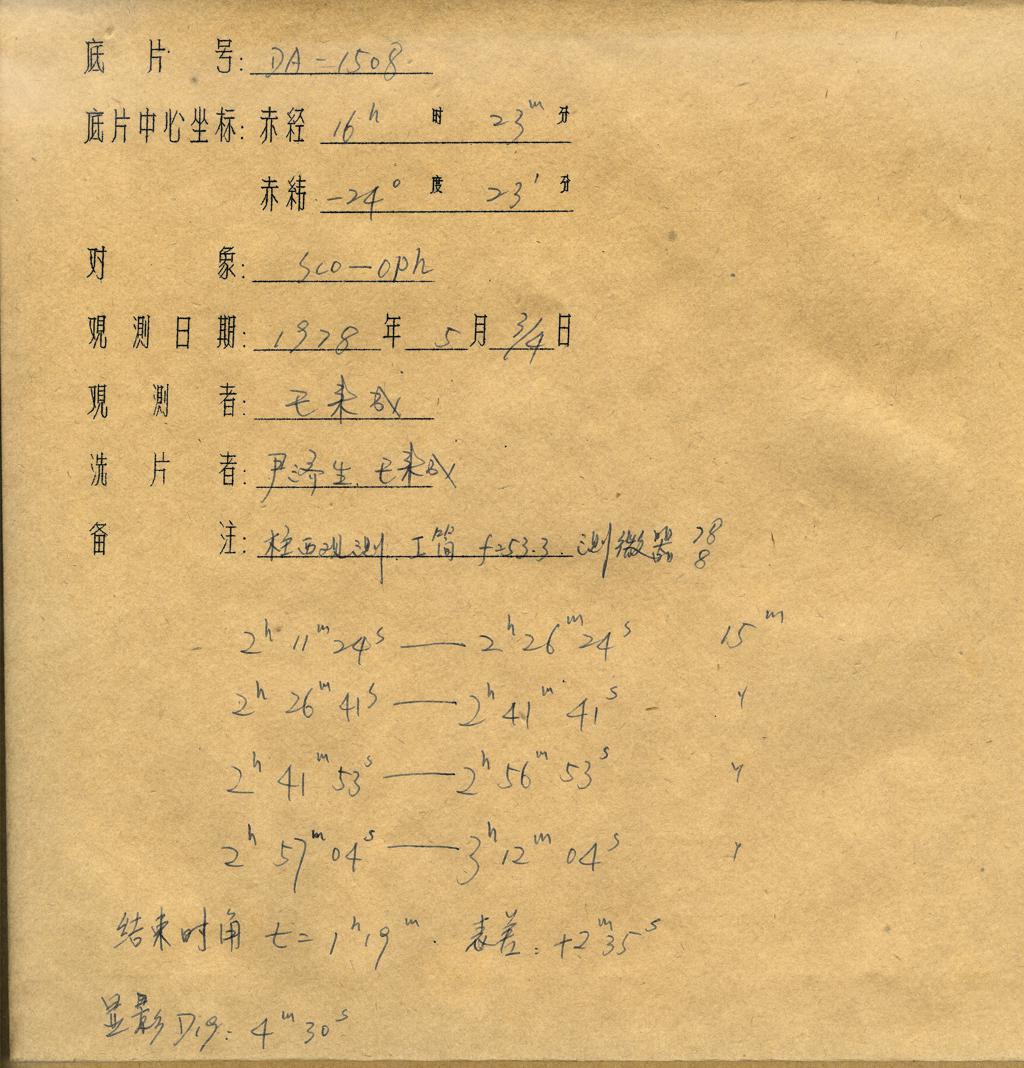 底片号: DA-1508
底片中心坐标: 赤经 16h 时 23m 分
赤纬 -24° 度 23' 分
对象: Sco-Oph
观测日期: 1978年5月3/4日
观测者: 毛来成
洗片者: 尹济生、毛来成
备注: 柱西观测 工筒 f=53.3 测微器 78 8
2h 11m 24s — 2h 26m 24s 15m
2h 26m 41s — 2h 41m 41s 〃
2h 41m 53s — 2h 56m 53s 〃
2h 57m 04s — 3h 12m 04s 〃
结束时角 t=1h19m. 表差: +2m35s
显影 D19: 4m 30s